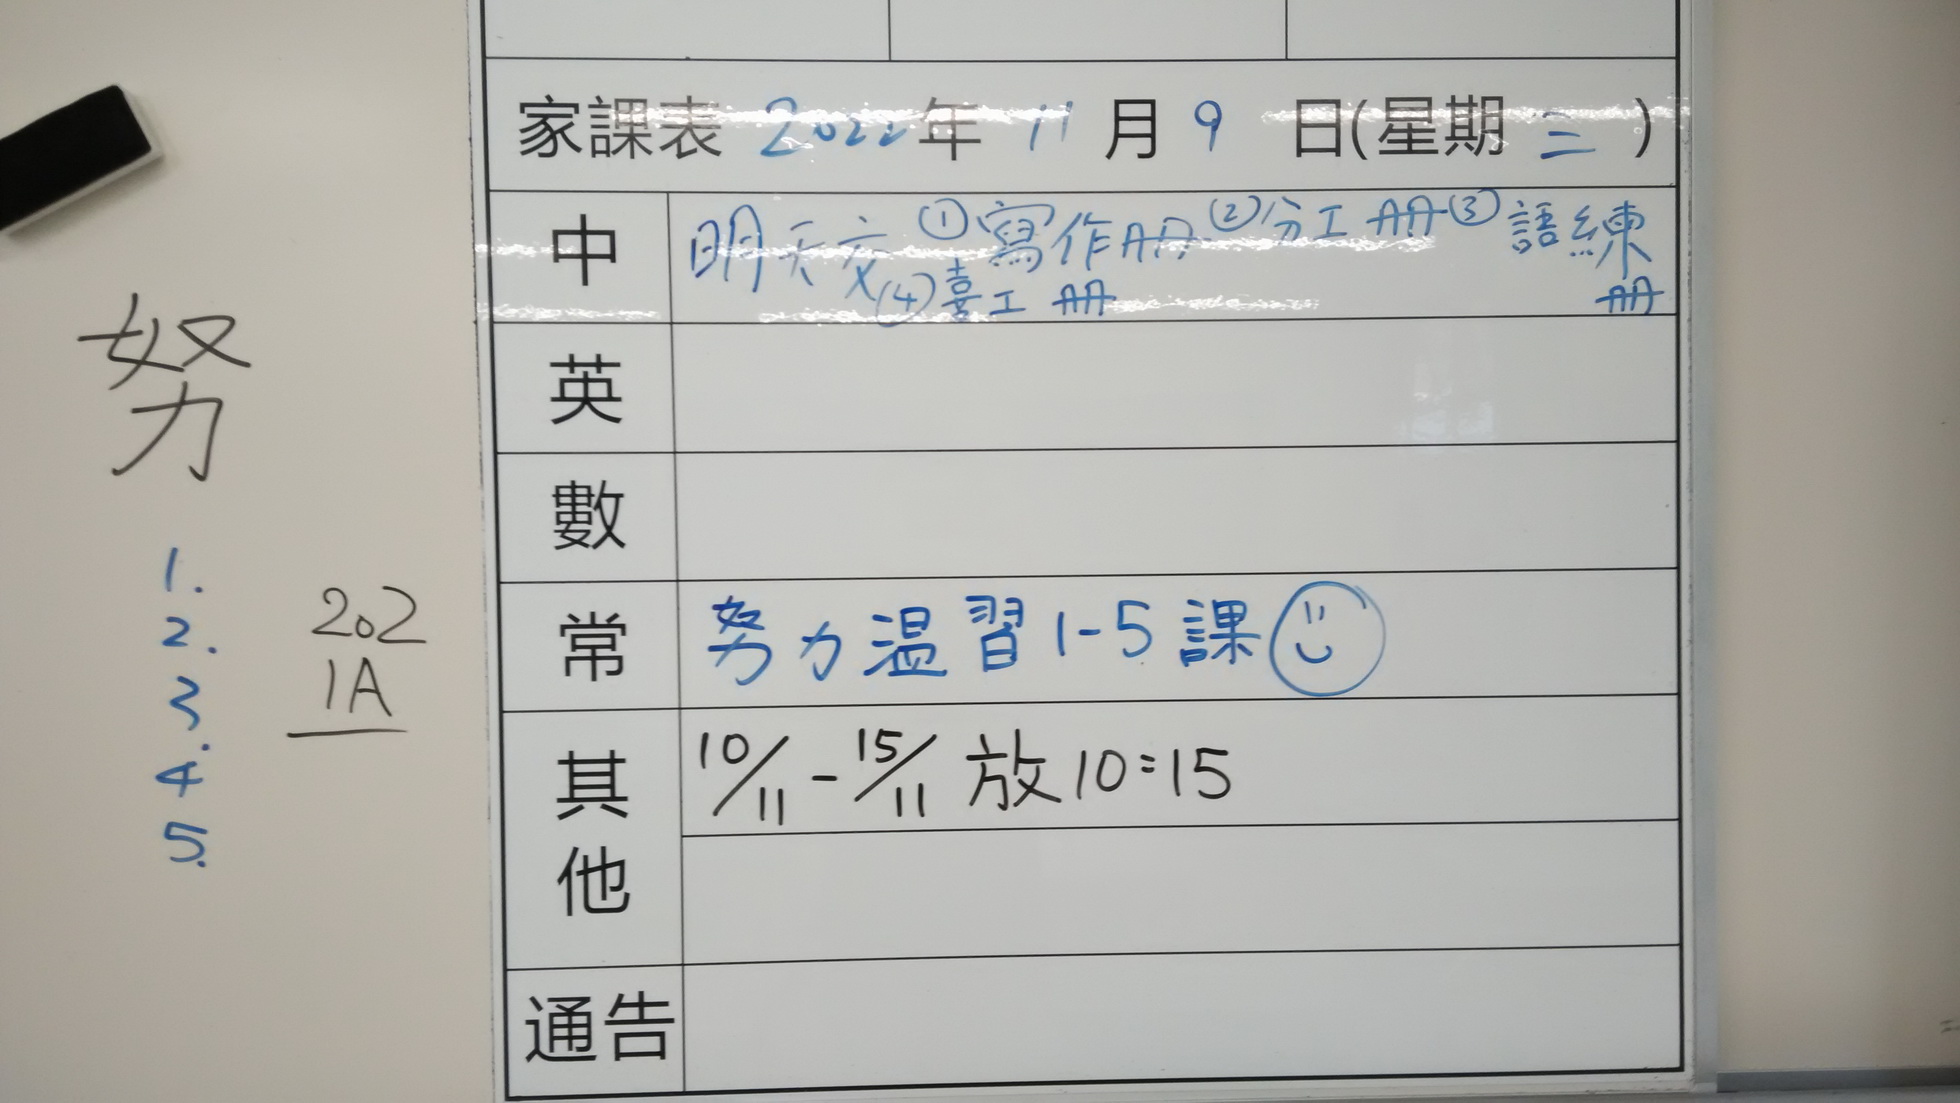 家課表 2022年 11 月 9 日(星期 三 )
中 明天交①寫作册②分工册③語練册
④喜工册
英
數
常 努力温習1-5課
其他 10/11 - 15/11 放10:15
通告
努力
1.
2.
3.
4.
5.
202
1A